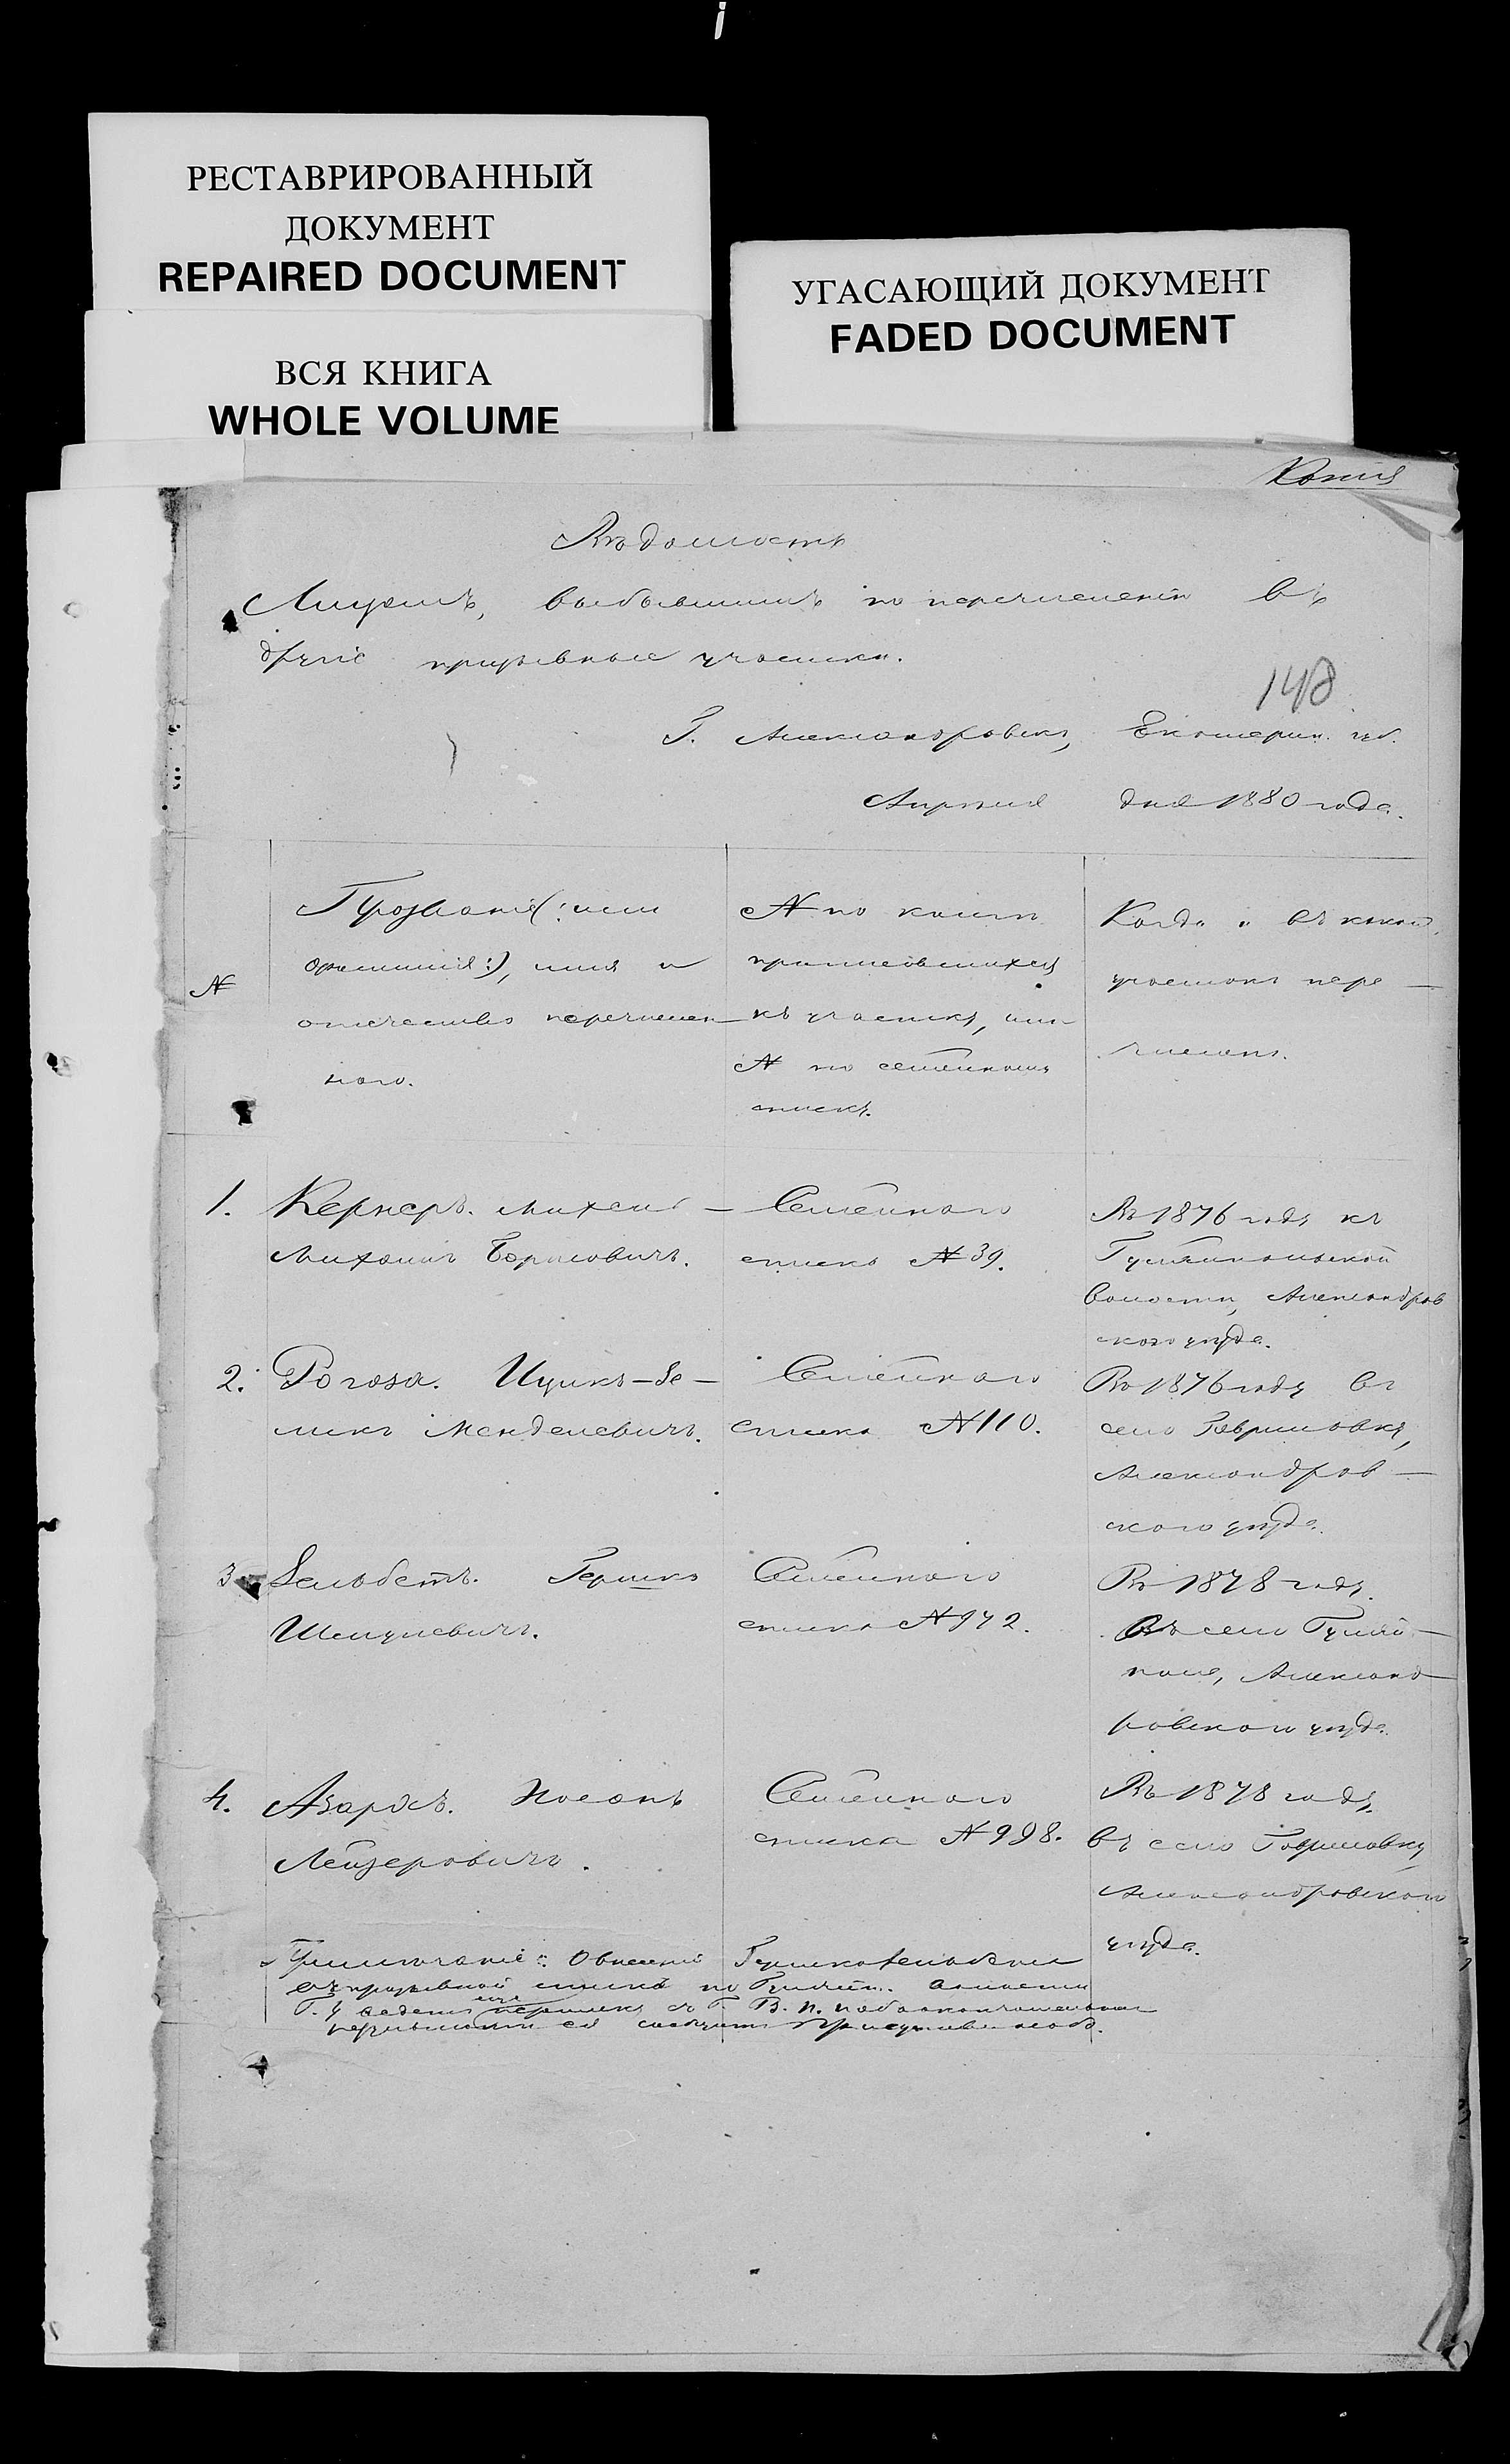 РЕСТАВРИРОВАННЫЙ
ДОКУМЕНТ
REPAIRED DOCUMENT
ВСЯ КНИГА
WHOLE VOLUME
УГАСАЮЩИЙ ДОКУМЕНТ
FADED DOCUMENT
Копія
Вѣдомость
Лицамъ, выбывшимъ по перечисленію въ
другіе призывные участки.
148
Г. Александровскъ, Екатерин. губ.
Апрѣля дня 1880 года.
№
Прозваніе (: или
фамилія :), имя и
отчество перечислен-
наго.
№ по книгѣ
приписавшихся
къ участку, или
№ по семейному
списку.
Когда и въ какой
участокъ пере-
численъ.
1. Кернеръ. Михель-
Михаилъ Борисовичъ.
Семейнаго
списка № 39.
Въ 1876 году къ
Гуляйпольской
волости, Александров
скаго уѣзда.
2. Рогоза. Ицикъ-Зе-
ликъ Менделевичъ.
Семейнаго
списка № 110.
Въ 1876 году въ
село Гавриловку,
Александров-
скаго уѣзда.
3 Зельбетъ. Гершко
Шмулевичъ.
Семейнаго
списка № 972.
Въ 1878 году.
Въ село Гуляй-
поле, Александ-
ровскаго уѣзда.
4. Азархъ. Носонъ
Лейзеровичъ.
Семейнаго
списка № 998.
Въ 1878 году,
въ село Гавриловку
Александровскаго
уѣзда.
Примѣчаніе: О внесеніи Гершко Зельбета
въ призывной списокъ по Гуляйп. волости
Г. У ведетъ еще переписку съ Г. В. п.